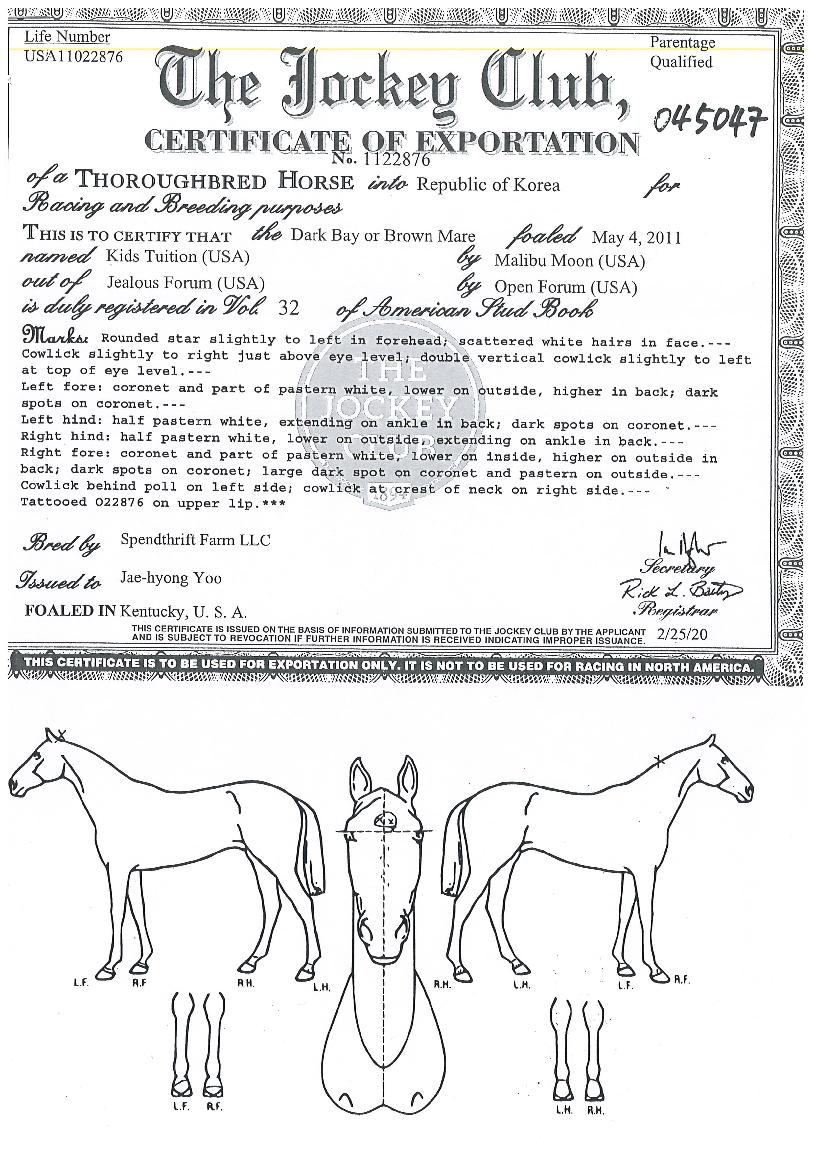 Life Number
USA11022876
Parentage
Qualified
The Jockey Club,
045047
CERTIFICATE OF EXPORTATION
No. 1122876
of a THOROUGHBRED HORSE into Republic of Korea for
Racing and Breeding purposes
THIS IS TO CERTIFY THAT the Dark Bay or Brown Mare foaled May 4, 2011
named Kids Tuition (USA) by Malibu Moon (USA)
out of Jealous Forum (USA) by Open Forum (USA)
is duly registered in Vol. 32 of American Stud Book
Marks: Rounded star slightly to left in forehead; scattered white hairs in face.---
Cowlick slightly to right just above eye level; double vertical cowlick slightly to left
at top of eye level.---
Left fore: coronet and part of pastern white, lower on outside, higher in back; dark
spots on coronet.---
Left hind: half pastern white, extending on ankle in back; dark spots on coronet.---
Right hind: half pastern white, lower on outside, extending on ankle in back.---
Right fore: coronet and part of pastern white, lower on inside, higher on outside in
back; dark spots on coronet; large dark spot on coronet and pastern on outside.---
Cowlick behind poll on left side; cowlick at crest of neck on right side.---
Tattooed O22876 on upper lip.***
THE
JOCKEY
CLUB
1894
Bred by Spendthrift Farm LLC
Secretary
Issued to Jae-hyong Yoo
Rick L. Bailey
Registrar
FOALED IN Kentucky, U. S. A.
THIS CERTIFICATE IS ISSUED ON THE BASIS OF INFORMATION SUBMITTED TO THE JOCKEY CLUB BY THE APPLICANT
AND IS SUBJECT TO REVOCATION IF FURTHER INFORMATION IS RECEIVED INDICATING IMPROPER ISSUANCE. 2/25/20
THIS CERTIFICATE IS TO BE USED FOR EXPORTATION ONLY. IT IS NOT TO BE USED FOR RACING IN NORTH AMERICA.
L.F. R.F R.H. L.H. R.H. L.H. L.F. R.F.
L.F. R.F. L.H. R.H.